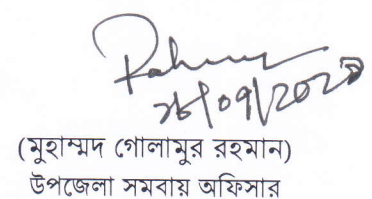 Rahman
26/09/2023
(মুহাম্মদ গোলামুর রহমান)
উপজেলা সমবায় অফিসার